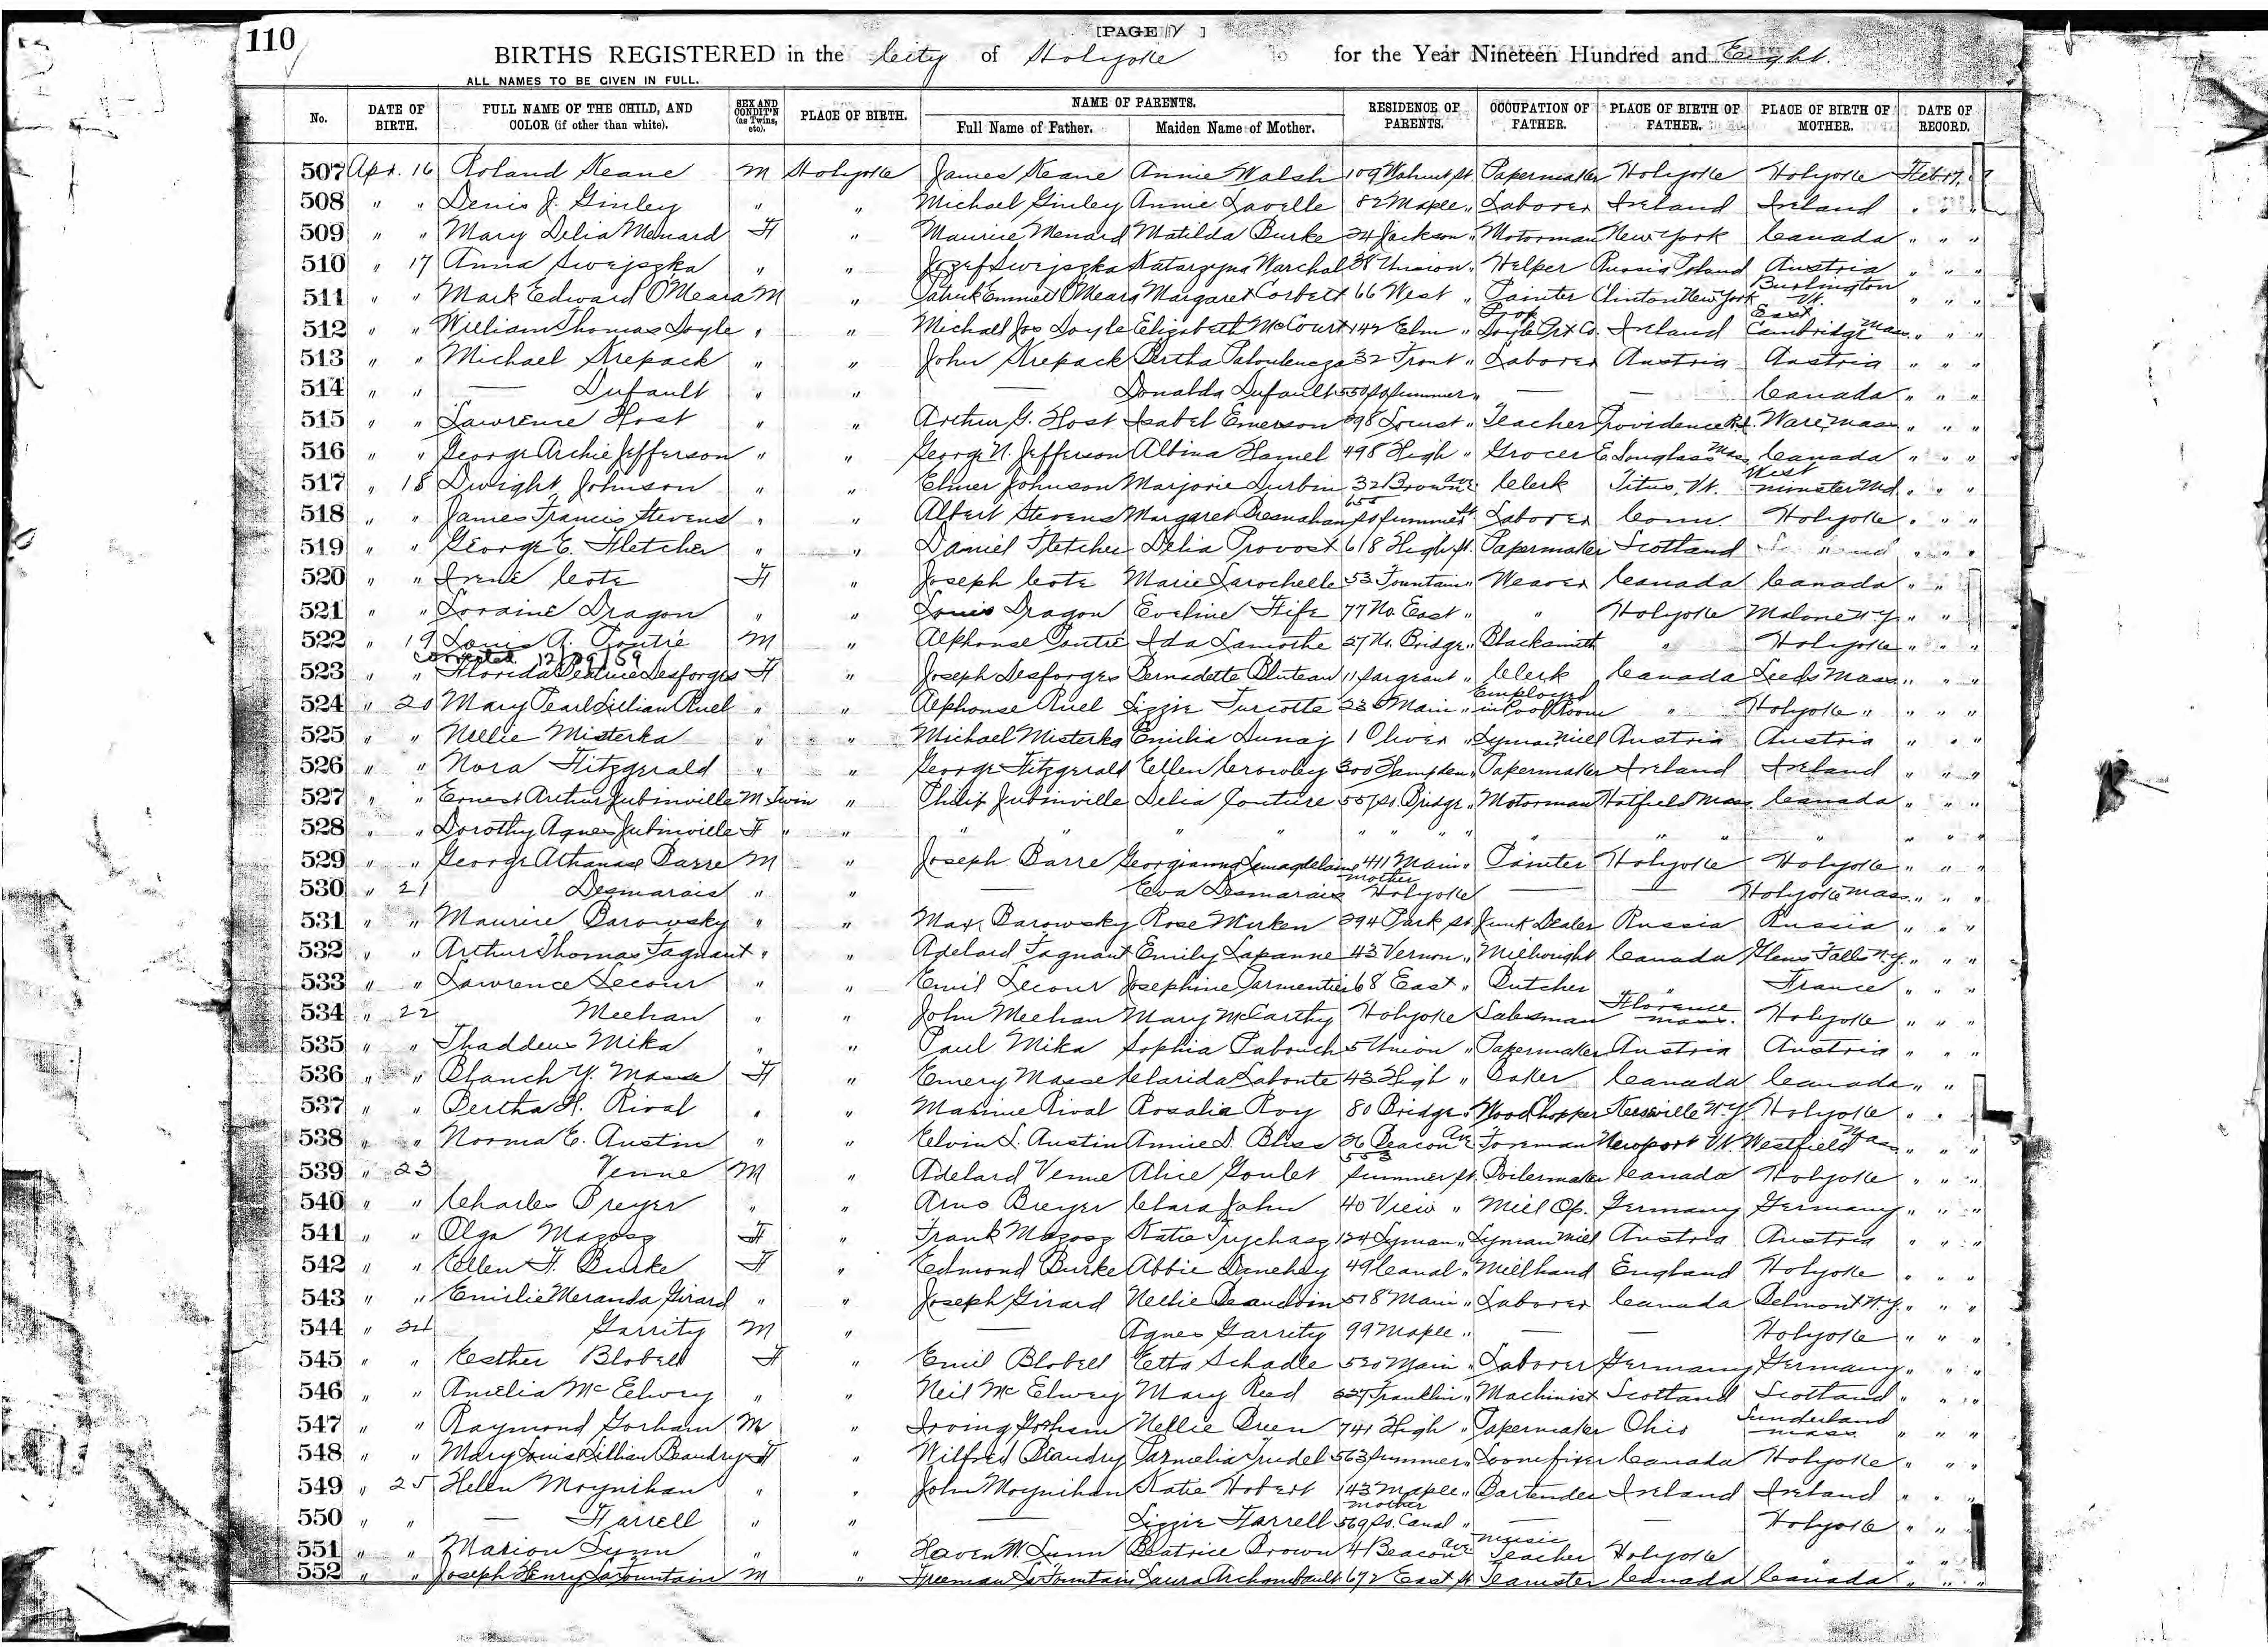 110
[PAGE ]
BIRTHS REGISTERED in the City of Holyoke for the Year Nineteen Hundred and Eight.
ALL NAMES TO BE GIVEN IN FULL.
No. DATE OF BIRTH. FULL NAME OF THE CHILD, AND COLOR (if other than white). SEX AND CONDIT'N (as Twins, etc). PLACE OF BIRTH. NAME OF PARENTS. Full Name of Father. Maiden Name of Mother. RESIDENCE OF PARENTS. OCCUPATION OF FATHER. PLACE OF BIRTH OF FATHER. PLACE OF BIRTH OF MOTHER. DATE OF RECORD.
507 Apr. 16 Roland Keane M Holyoke James Keane Annie Walsh 109 Walnut st. Papermaker Holyoke Holyoke Feb 17,
508 " " Denis J. Ginley " " Michael Ginley Annie Lavelle 82 Maple " Laborer Ireland Ireland " " "
509 " " Mary Delia Menard F " Maurice Menard Matilda Burke 24 Jackson " Motorman New York Canada " " "
510 " 17 Anna Swejszka " " Jozef Swejszka Katarzyna Warchal 38 Union " Helper Russia Poland Austria " " "
511 " " Mark Edward O'Meara M " Patrick Emmet O'Meara Margaret Corbett 66 West " Painter Clinton New York Burlington Vt. " " "
512 " " William Thomas Doyle " " Michael Jos Doyle Elizabeth McCourt 142 Elm " Prop Doyle Prt Co. Ireland East Cambridge Mass. " " "
513 " " Michael Krepack " " John Krepack Bertha 32 Front " Laborer Austria Austria " " "
514 " " — Dufault " " — Donalda Dufault 550 So Summer " — — Canada " " "
515 " " Lawrence Host " " Arthur G. Host Isabel Emerson 298 Locust " Teacher Providence R.I. Ware, Mass " " "
516 " " George Archie Jefferson " " George N. Jefferson Albina Hamel 498 High " Grocer E. Douglass Mass Canada " " "
517 " 18 Dwight Johnson " " Elmer Johnson Marjorie Durbin 32 Brown Ave Clerk Titus, Vt. West minster Md. " " "
518 " " James Francis Stevens " " Albert Stevens Margaret Bresnahan 655 So Summer st Laborer Conn. Holyoke " " "
519 " " George E. Fletcher " " Daniel Fletcher Delia Provost 618 High st. Papermaker Scotland " " "
520 " " Irene Cote F " Joseph Cote Marie Larochelle 53 Fountain " Weaver Canada Canada " "
521 " " Loraine Dragon " " Louis Dragon Eveline Fife 77 No. East " " Holyoke Malone N.Y. " "
522 " 19 Louis A. Poutré M " Alphonse Poutré Ida Lamothe 27 No. Bridge " Blacksmith " Holyoke " " "
Corrected 12/29/59
523 " " Florida Beatrice Desforges F " Joseph Desforges Bernadette Bluteau 11 Sargeant " Clerk Canada Leeds Mass. " " "
524 " 20 Mary Pearl Lilian Ruel " " Alphonse Ruel Lizzie Turcotte 236 Main " Employed in Pool Room " Holyoke " " " "
525 " " Nellie Misterka " " Michael Misterka Emilia Dunaj 1 Oliver " Lyman Mill Austria Austria " " "
526 " " Nora Fitzgerald " " George Fitzgerald Ellen Crowley 300 Hampden " Papermaker Ireland Ireland " " "
527 " " Ernest Arthur Jubinville M Twin " Philip Jubinville Delia Couture 557 So. Bridge " Motorman Hatfield Mass Canada " " "
528 " " Dorothy Agnes Jubinville F " " " " " " " " " " " " " " " " " "
529 " " George Athanase Barre M " Joseph Barre Georgianna Lamagdelaine 411 Main " Painter Holyoke Holyoke " " "
530 " 21 Desmarais " " — Eva Desmarais mother Holyoke — — Holyoke Mass. " " "
531 " " Maurice Barowsky " " Max Barowsky Rose Mirken 294 Park st Junk Dealer Russia Russia " " "
532 " " Arthur Thomas Tagnant " " Adelard Tagnant Emily Lapanne 43 Vernon " Millwright Canada Glens Falls N.Y. " " "
533 " " Lawrence Lecour " " Emil Lecour Josephine Parmentier 68 East " Butcher " France " " "
534 " 22 Meehan " " John Meehan Mary McCarthy Holyoke Salesman Florence Mass. Holyoke " " "
535 " " Thaddeus Mika " " Paul Mika Sophia Pabouch 5 Union " Papermaker Austria Austria " " "
536 " " Blanch Y. Masse F " Emery Masse Clarida Labonte 43 High " Baker Canada Canada " "
537 " " Bertha H. Rival " " Maxime Rival Rosalia Roy 80 Bridge " Wood Chopper Keesville N.Y. Holyoke " "
538 " " Norma E. Austin " " Elvin L. Austin Annie D. Bliss 26 Beacon Ave Foreman Newport Vt. Westfield Mass. " " "
539 " 23 Venne M " Adelard Venne Alice Goulet 553 Summer st. Boilermaker Canada Holyoke " " "
540 " " Charles Breyer " " Arno Breyer Clara John 40 View " Mill Op. Germany Germany " " "
541 " " Olga Mazosz F " Frank Mazosz Katie Trychasz 124 Lyman " Lyman Mill Austria Austria " " "
542 " " Ellen F. Burke F " Edmond Burke Abbie Danehey 49 Canal " Millhand England Holyoke " " "
543 " " Emilie Meranda Girard " " Joseph Girard Nellie Beaudoin 518 Main " Laborer Canada Belmont N.Y. " " "
544 " 24 Garrity M " — Agnes Garrity 99 Maple " — — Holyoke " " "
545 " " Esther Blobell F " Emil Blobell Etta Schadle 520 Main " Laborer Germany Germany " " "
546 " " Amelia McElwey " " Neil McElwey Mary Reed 227 Franklin " Machinist Scotland Scotland " " "
547 " " Raymond Gorham M " Irving Gorham Nellie Breen 741 High " Papermaker Ohio Sunderland Mass. " " "
548 " " Mary Louise Lillian Beaudry F " Wilfred Beaudry Parmelia Trudel 563 Summer " Loomfixer Canada Holyoke " " "
549 " 25 Helen Moynihan " " John Moynihan Katie Hobert 143 Maple " Bartender Ireland Ireland " " "
550 " " — Farrell " " — Lizzie Farrell mother 569 So. Canal " — — Holyoke " " "
551 " " Marion Lunn " " Haven W. Lunn Beatrice Brown 41 Beacon Ave Music Teacher Holyoke " " " "
552 " " Joseph Henry LaFountain M " Freeman LaFountain Laura Archambault 672 East st Teamster Canada Canada " " "